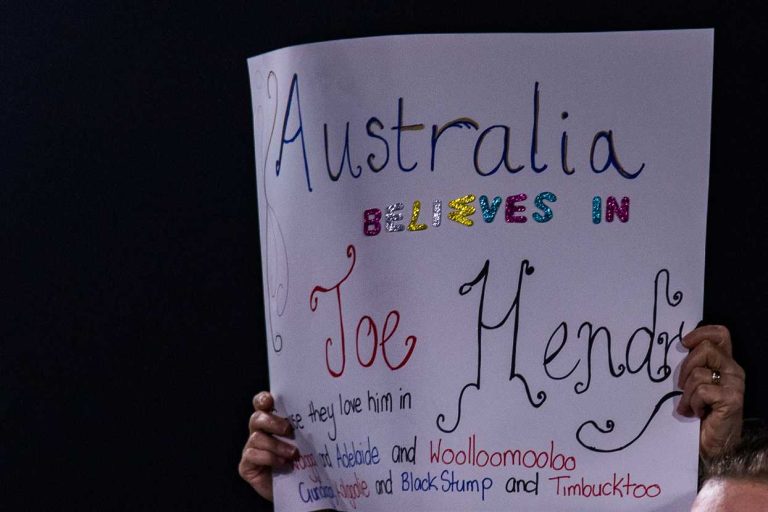 Australia
BELIEVES IN
Joe Hendr
they love him in
and Adelaide and Woolloomooloo
and Black Stump and Timbucktoo